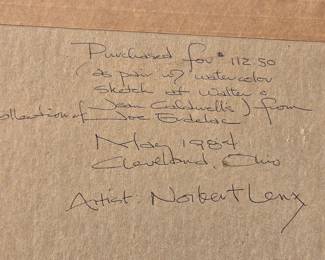 Purchased for $112.50
(as pair w/ watercolor
sketch of Walter &
Jean Caldwell's) from
collection of Joe Erdelac
May 1984
Cleveland, Ohio
Artist: Norbert Lenz